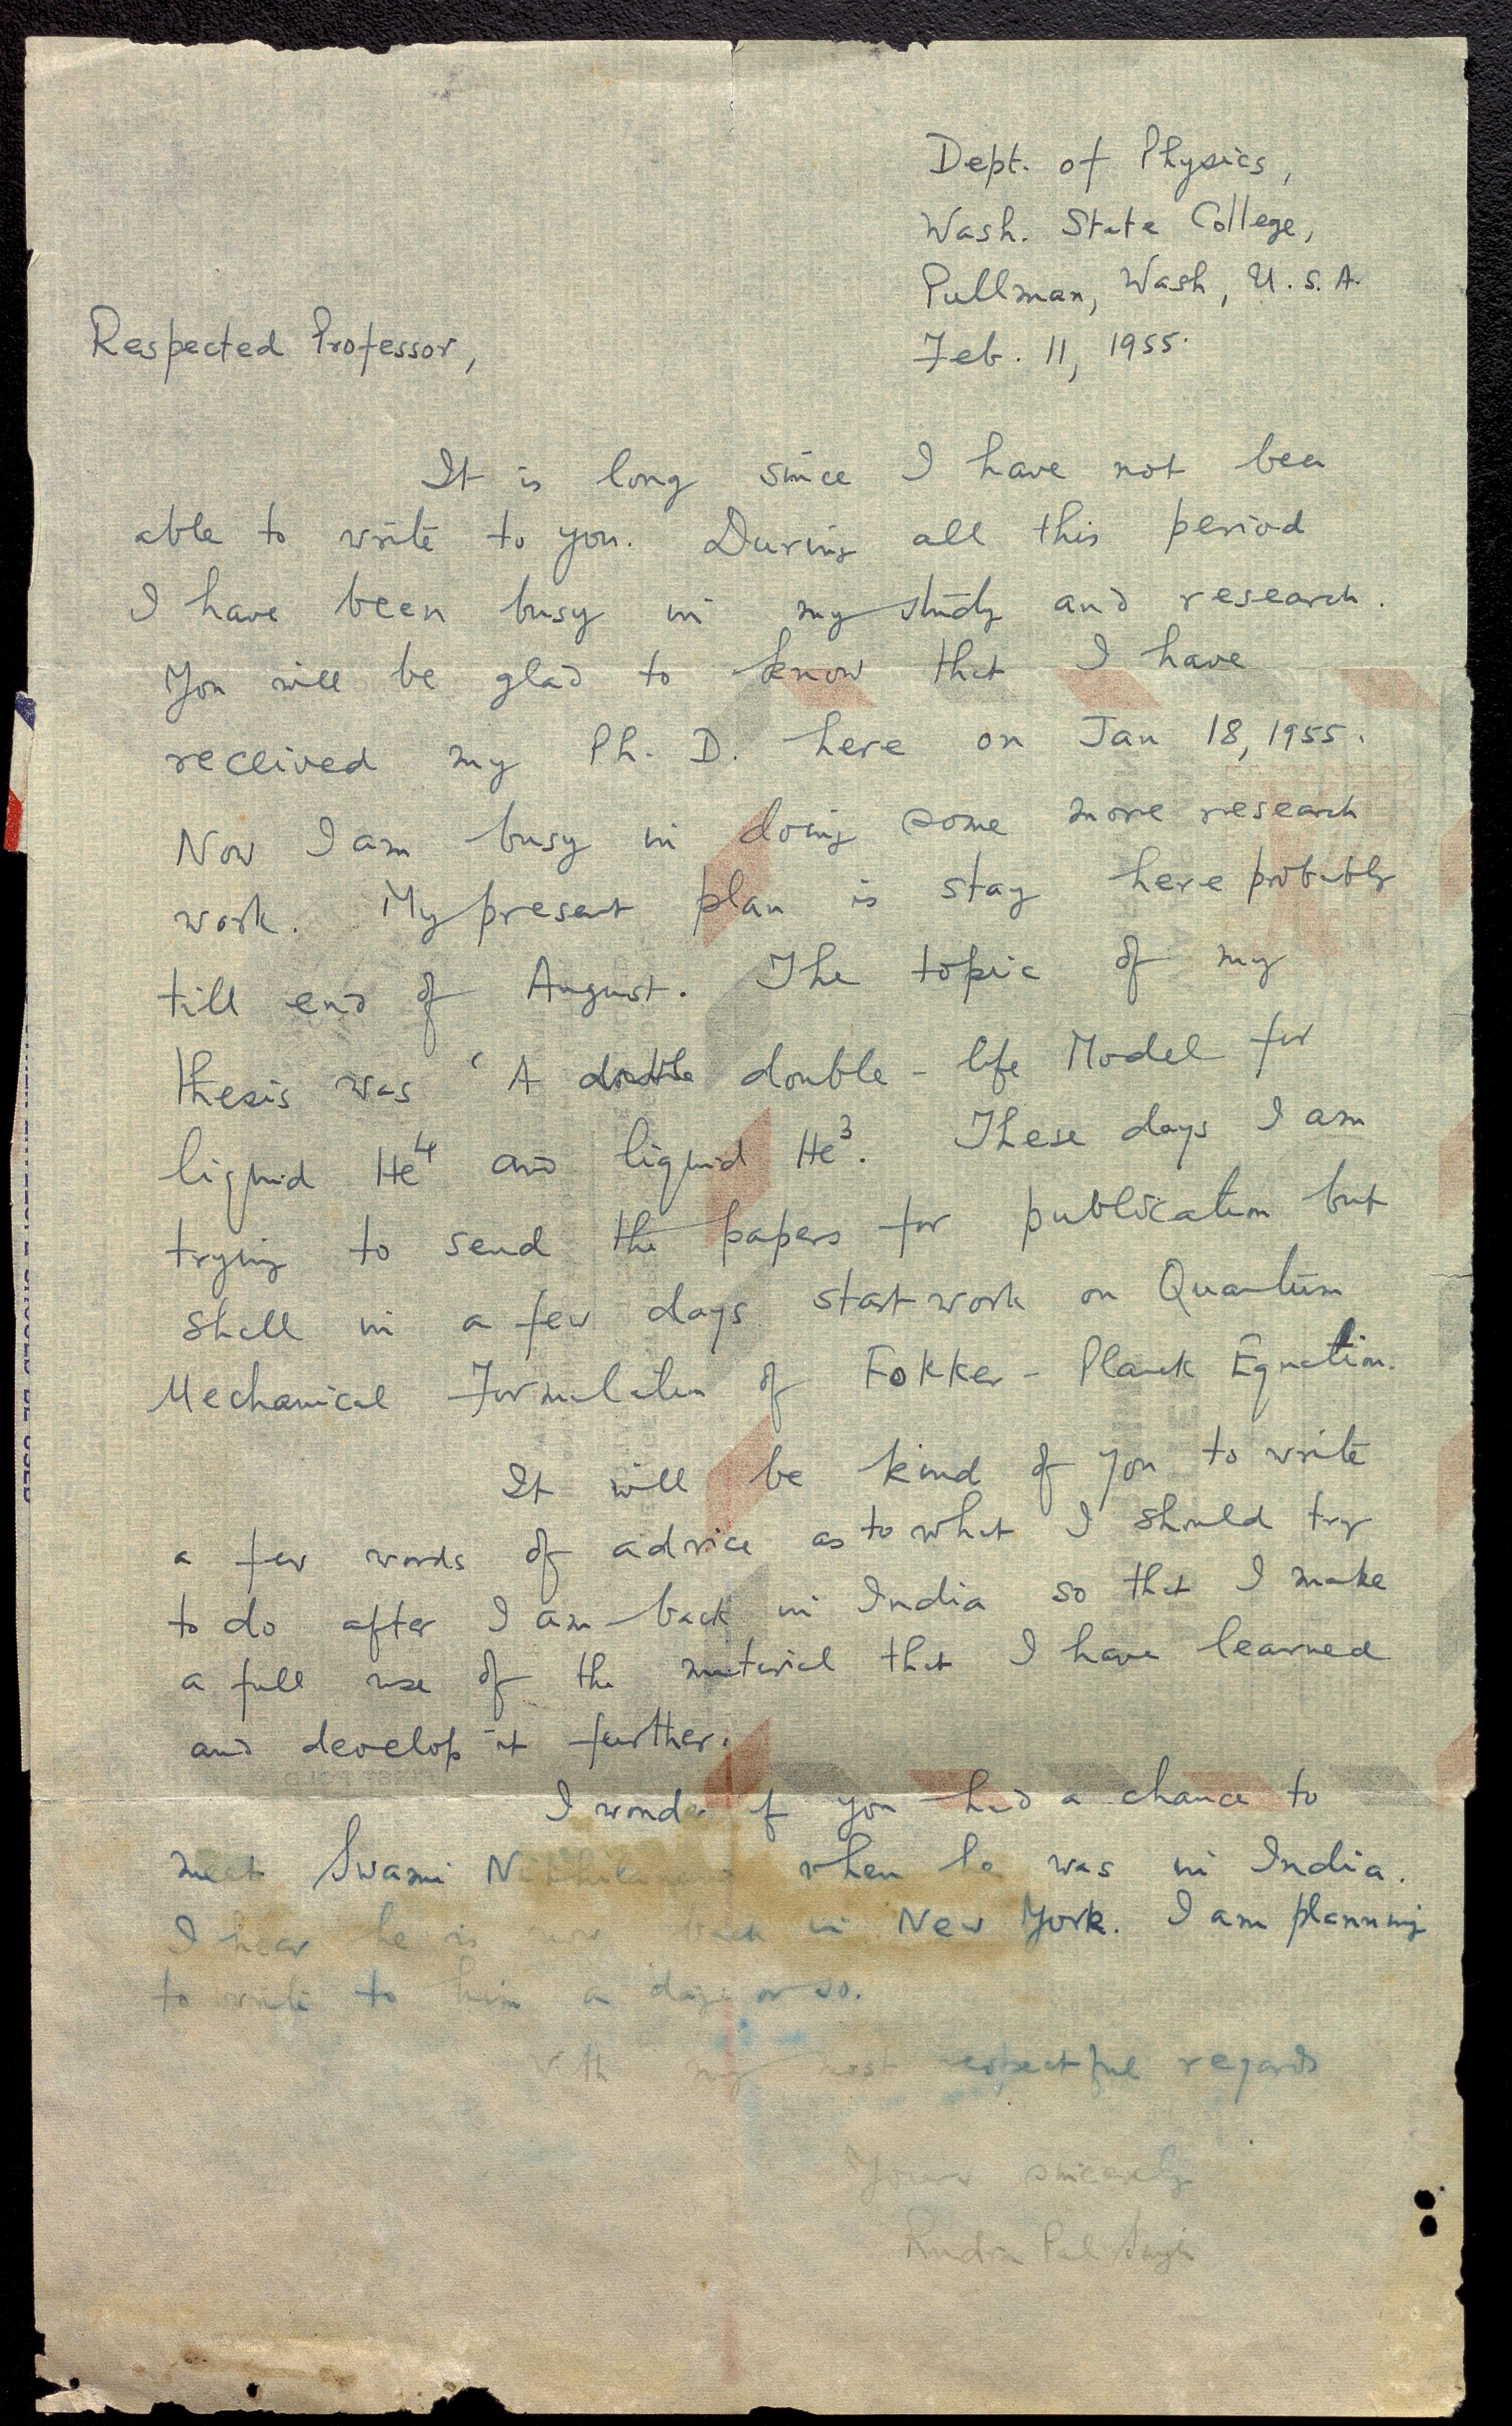 Dept. of Physics,
Wash. State College,
Pullman, Wash, U.S.A.
Feb. 11, 1955.
Respected Professor,
It is long since I have not been
able to write to you. During all this period
I have been busy in my study and research.
You will be glad to know that I have
received my Ph. D. here on Jan 18, 1955.
Now I am busy in doing some more research
work. My present plan is stay here probably
till end of August. The topic of my
thesis was 'A double double - life Model for
liquid He⁴ and liquid He³. These days I am
trying to send the papers for publication but
shall in a few days start work on Quantum
Mechanical Formulation of Fokker - Planck Equation.
It will be kind of you to write
a few words of advice as to what I should try
to do after I am back in India so that I make
a full use of the material that I have learned
and develop it further.
I wonder if you had a chance to
meet Swami when he was in India.
I hear he is now back in New York. I am planning
to write to him a day or so.
with my most respectful regards
Yours sincerely
Rudra Pal Singh